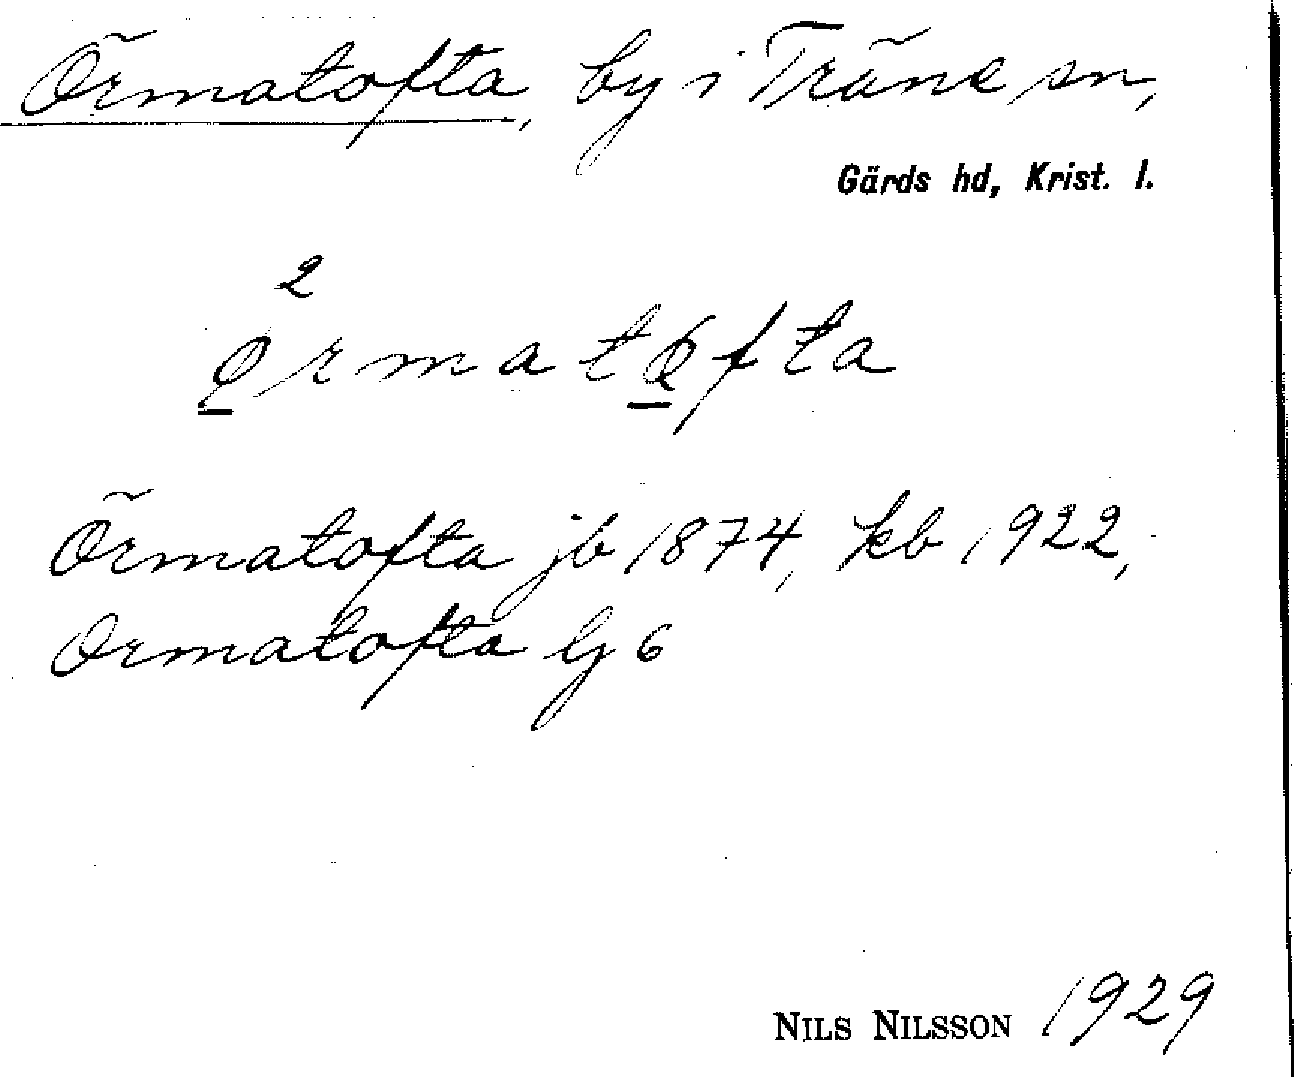 Örmatofta, by i Träne sn,
Gärds hd, Krist. l.
2
ørmatofta
Örmatofta jb 1874, kb 1922,
Ormatofta Gj 6
NILS NILSSON 1929